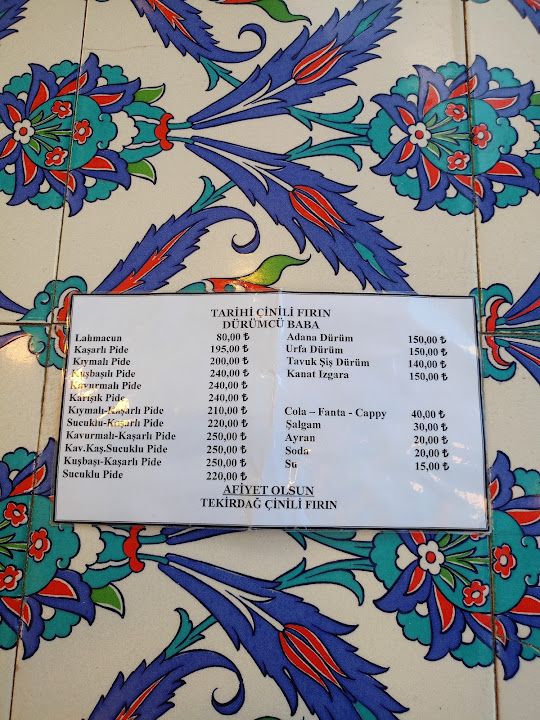 TARİHİ ÇİNİLİ FIRIN
DÜRÜMCÜ BABA
Lahmacun 80,00 ₺
Kaşarlı Pide 195,00 ₺
Kıymalı Pide 200,00 ₺
Kuşbaşılı Pide 240,00 ₺
Kavurmalı Pide 240,00 ₺
Karışık Pide 240,00 ₺
Kıymalı-Kaşarlı Pide 210,00 ₺
Sucuklu-Kaşarlı Pide 220,00 ₺
Kavurmalı-Kaşarlı Pide 250,00 ₺
Kav.Kaş.Sucuklu Pide 250,00 ₺
Kuşbaşı-Kaşarlı Pide 250,00 ₺
Sucuklu Pide 220,00 ₺
Adana Dürüm 150,00 ₺
Urfa Dürüm 150,00 ₺
Tavuk Şiş Dürüm 140,00 ₺
Kanat Izgara 150,00 ₺
Cola – Fanta - Cappy 40,00 ₺
Şalgam 30,00 ₺
Ayran 20,00 ₺
Soda 20,00 ₺
Su 15,00 ₺
AFİYET OLSUN
TEKİRDAĞ ÇİNİLİ FIRIN